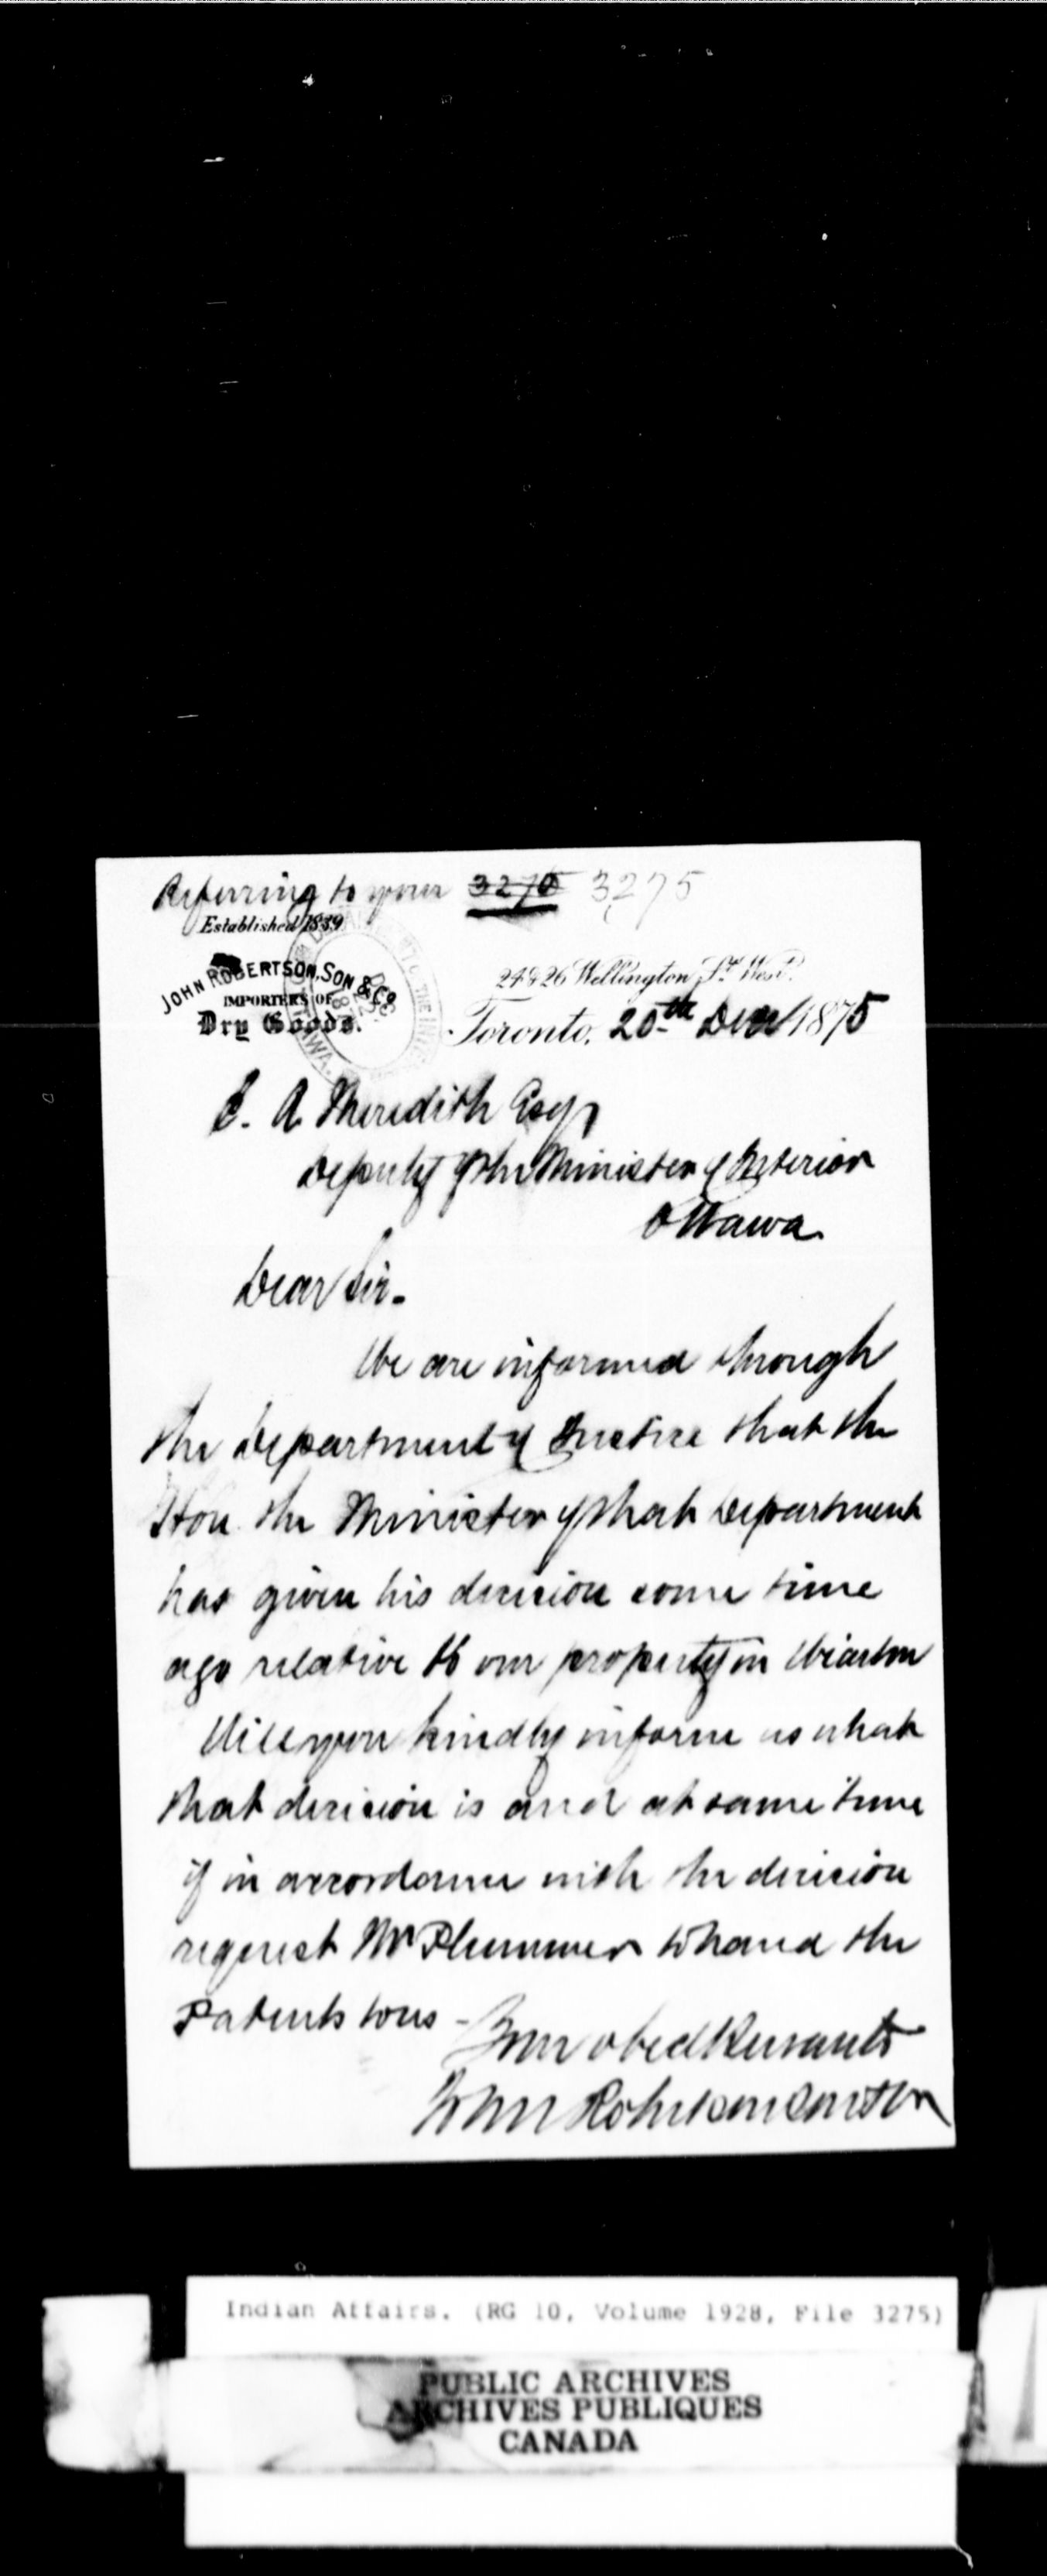 Referring to your 3270 3275
Established 1839
JOHN ROBERTSON, SON & Co
IMPORTERS OF
Dry Goods.
24 & 26 Wellington St. West.
Toronto, 20th Decr 1875
E. A. Meredith Esqr
Deputy of the Minister of Interior
Ottawa
Dear Sir.
We are informed through
the Department of Justice that the
Hon. the Minister of that Department
has given his decision some time
ago relative to our property in Wiarton
Will you kindly inform us what
that decision is and at same time
if in accordance with the decision
request Mr Plummer to hand the
Patents to us -
Your obedt Servants
John Robertson Son & Co
Indian Affairs. (RG 10, Volume 1928, File 3275)
PUBLIC ARCHIVES
ARCHIVES PUBLIQUES
CANADA